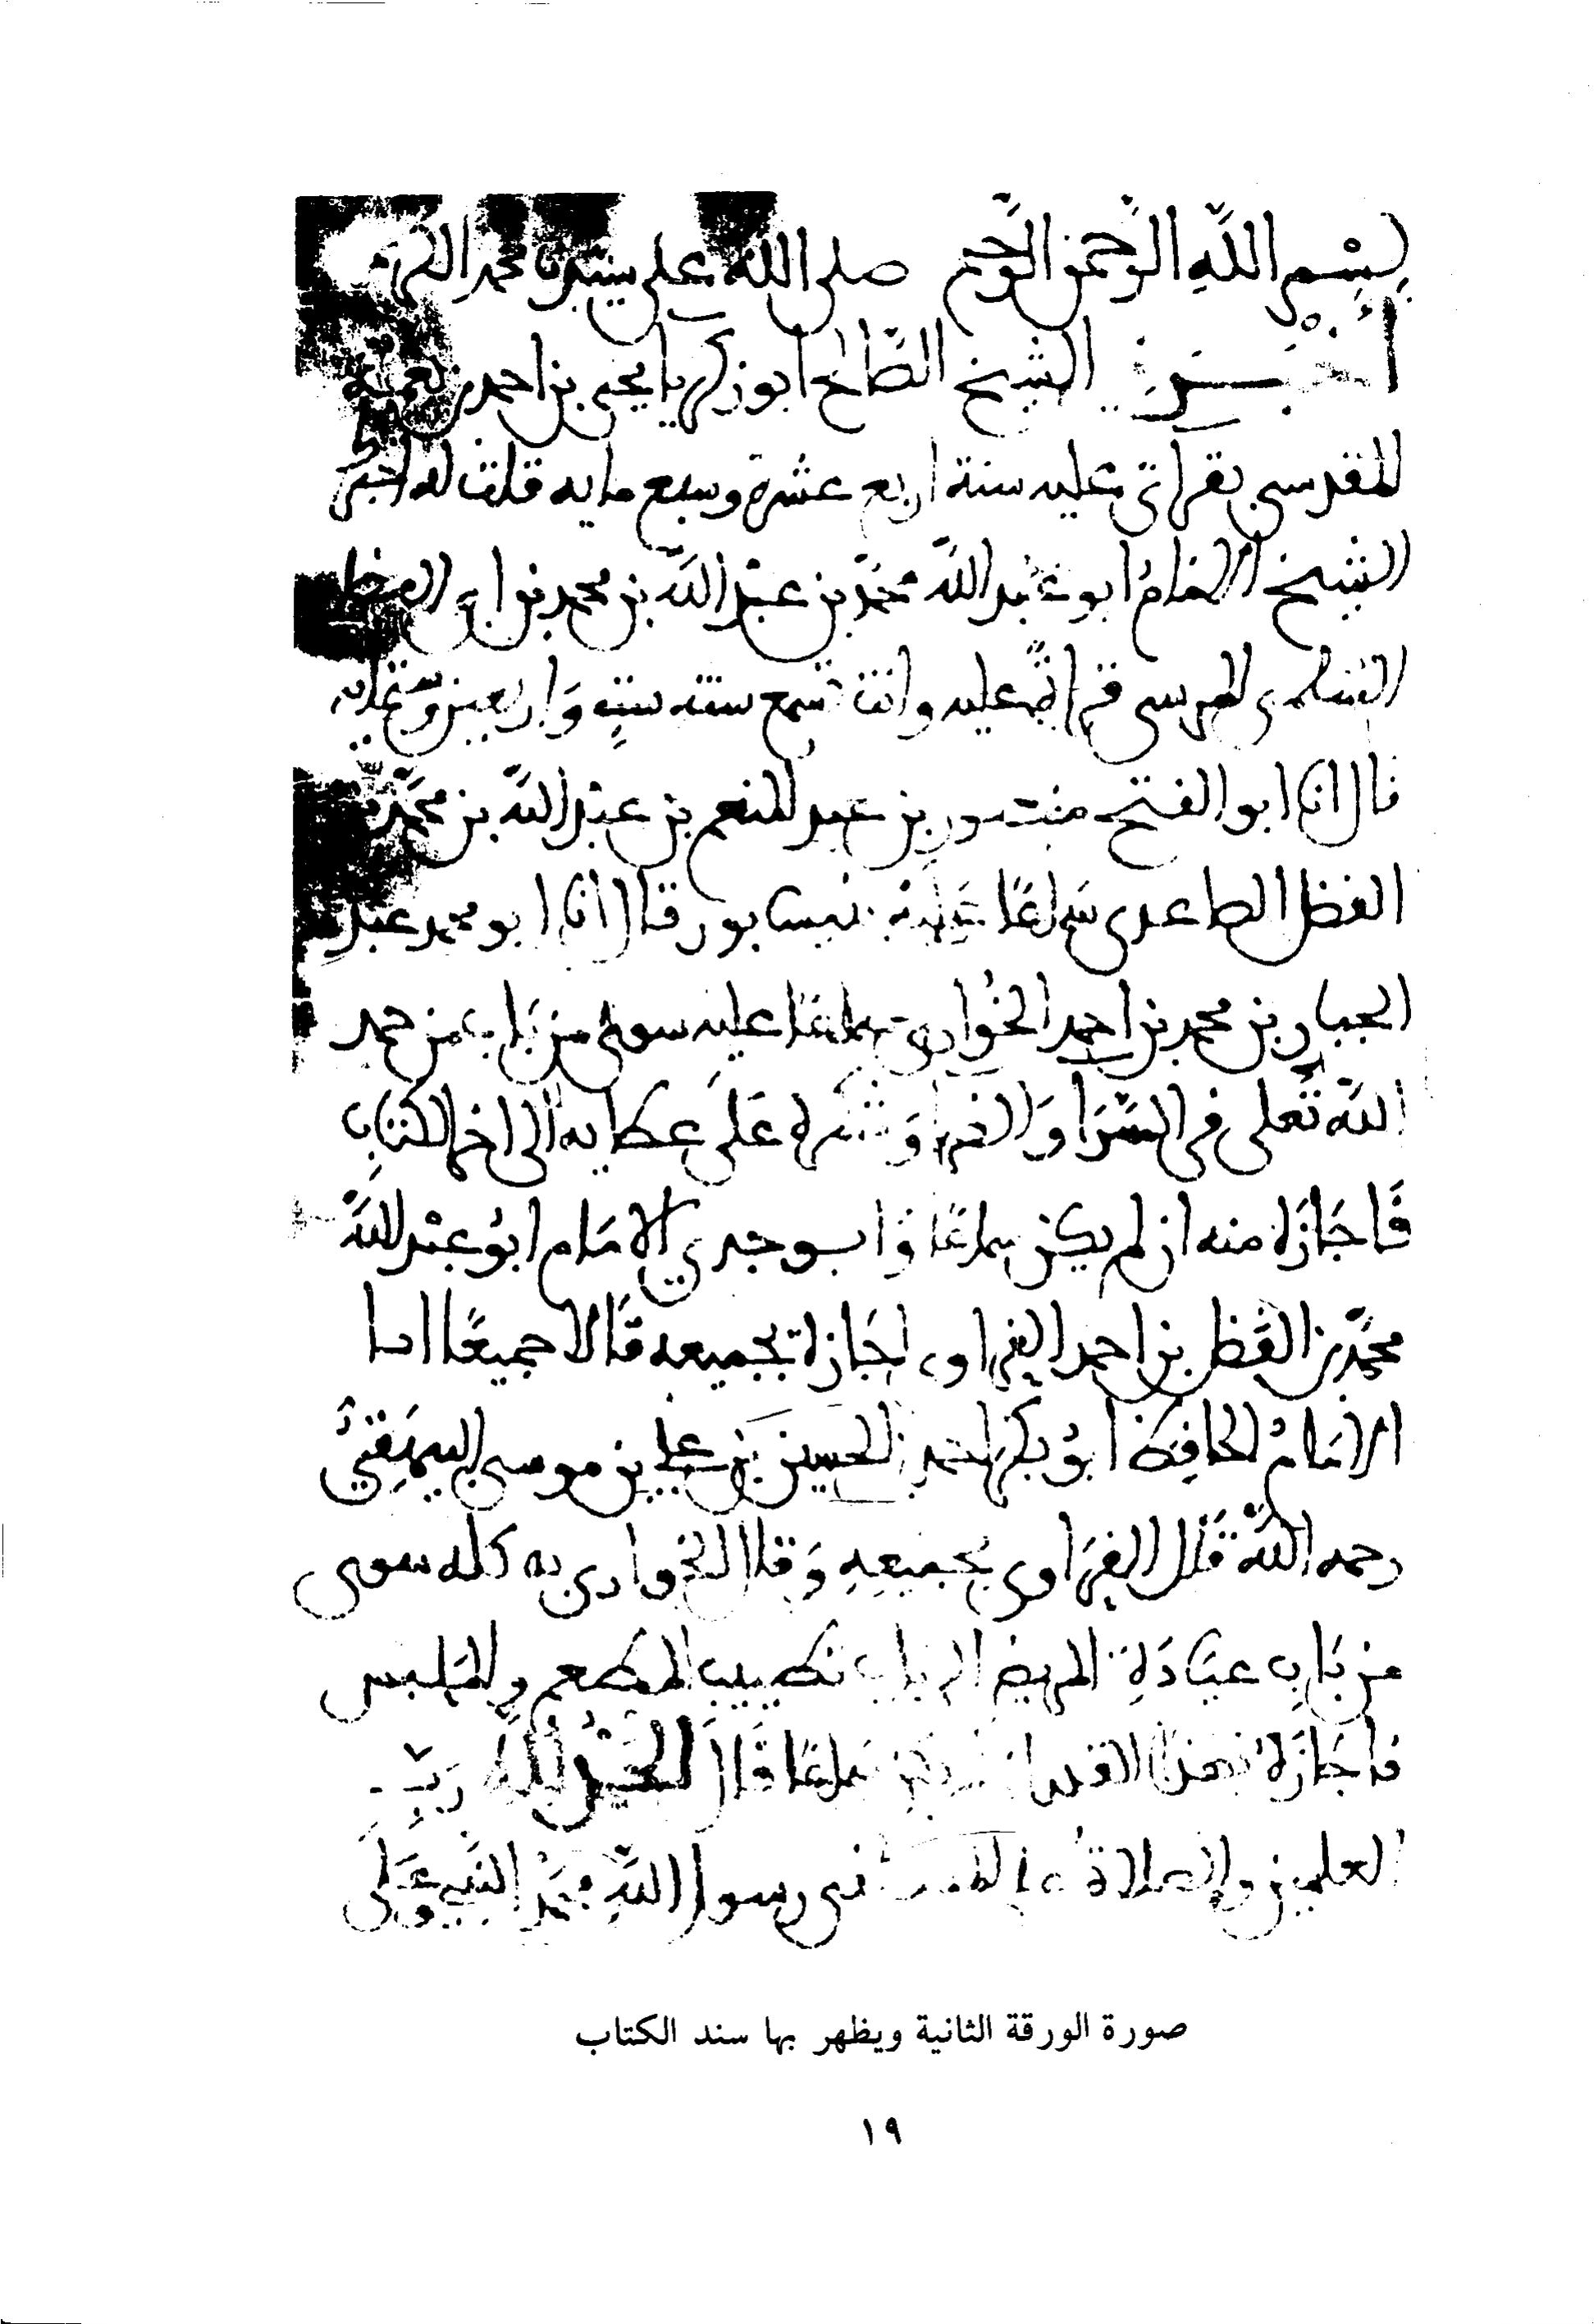 بِسْمِ اللَّهِ الرَّحمن الرَّحيم صلى الله على سيدنا محمد الكريم
أخبرنا الشيخ الصَّالح ابو زكريا يحيى بن احمد بن نعمة
المقدسي بقراتي عليه سنة اربع عشرة وسبع مايه قلت له اخبركم
الشيخ الامامُ ابو عَبد اللَّه محمَّد بن عبْد اللَّه بن محمد بن ابي الفضل
السلمى المرسى قراةً عليه وانت تسمع سنه ستٍ وَاربعين وستمايه
قال انا ابو الفتح منصور بن عبد المنعم بن عبْد اللَّه بن محمَّد بن
الفضل الصاعدى سَماعًا عَليه نيسابور قال انا ابو محمد عبد
الجبار بن محمد بن احمد الخُوارى سماعًا عليه سوى من بَاب من حمد
اللَّه تَعلى في السَّرَا وَالضرا وَشكره عَلَى عطايه الى اخر الكتَابِ
فَاجَازَة منه ان لم يكن سماعًا وَابو جدي الامَام ابوُ عبْد اللَّه
محمَّد بن الفَضل بن احمد الفراوى اجَازة بجميعه قَالا جميعًا انا
الامَامُ الحافِظ ابوُ بكر احمد بن الحسين بن علي بن موسى البيهَقيُّ
رحمه اللَّه قَال الفرَاوى بجَميعِهِ وَقال الخوارى به كله سوى
من بَابِ عيَادَةِ المريض الى باب تطييب المطعم والمَلبس
فاجَازَة لهذا القدر ان لم يكن سَماعًا قَالَ الحمْدُ للهِ رَبِّ
العلمين والصلاةُ على رسول اللَّهِ محمَّد النَّبي وَعَلَى
صورة الورقة الثانية ويظهر بها سند الكتاب
١٩